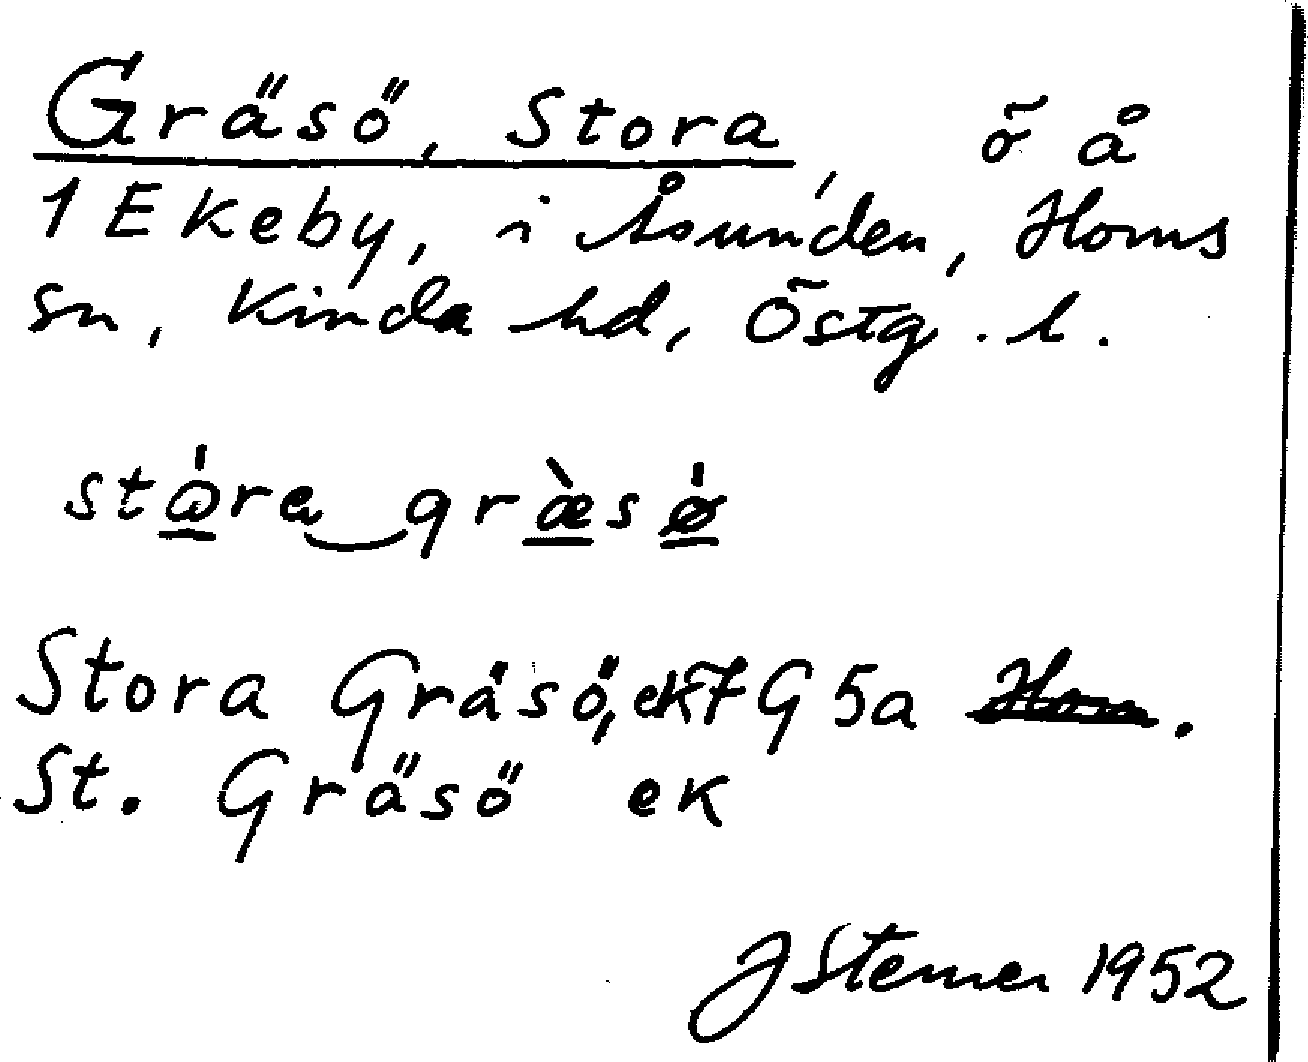 Gräsö, Stora, ö å
1 Ekeby, i Åsunden, Horns
sn, Kinda hd, Östg. l.
stɷ̀̇re græ̀sø̇
Stora Gräsö, ekf G5a Horn.
St. Gräsö ek
J Sterner 1952